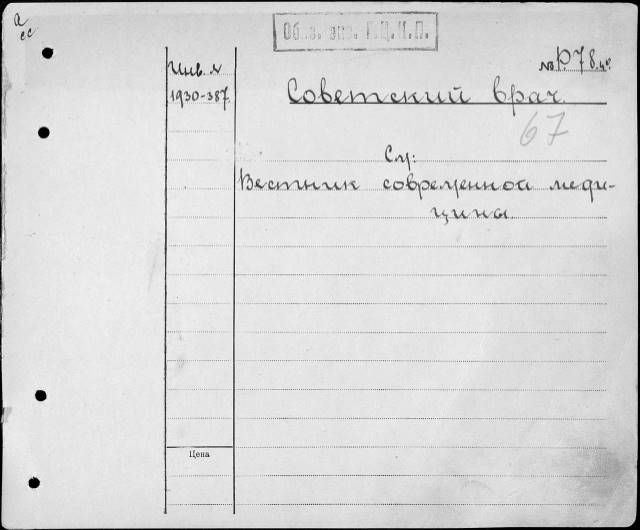 а
сс
Обяз. экз. Г.Ц.К.П.
Инв. №
№ Р78.4º
1930-387.
Советский врач.
67
См:
Вестник современной меди-
цины.
Цена